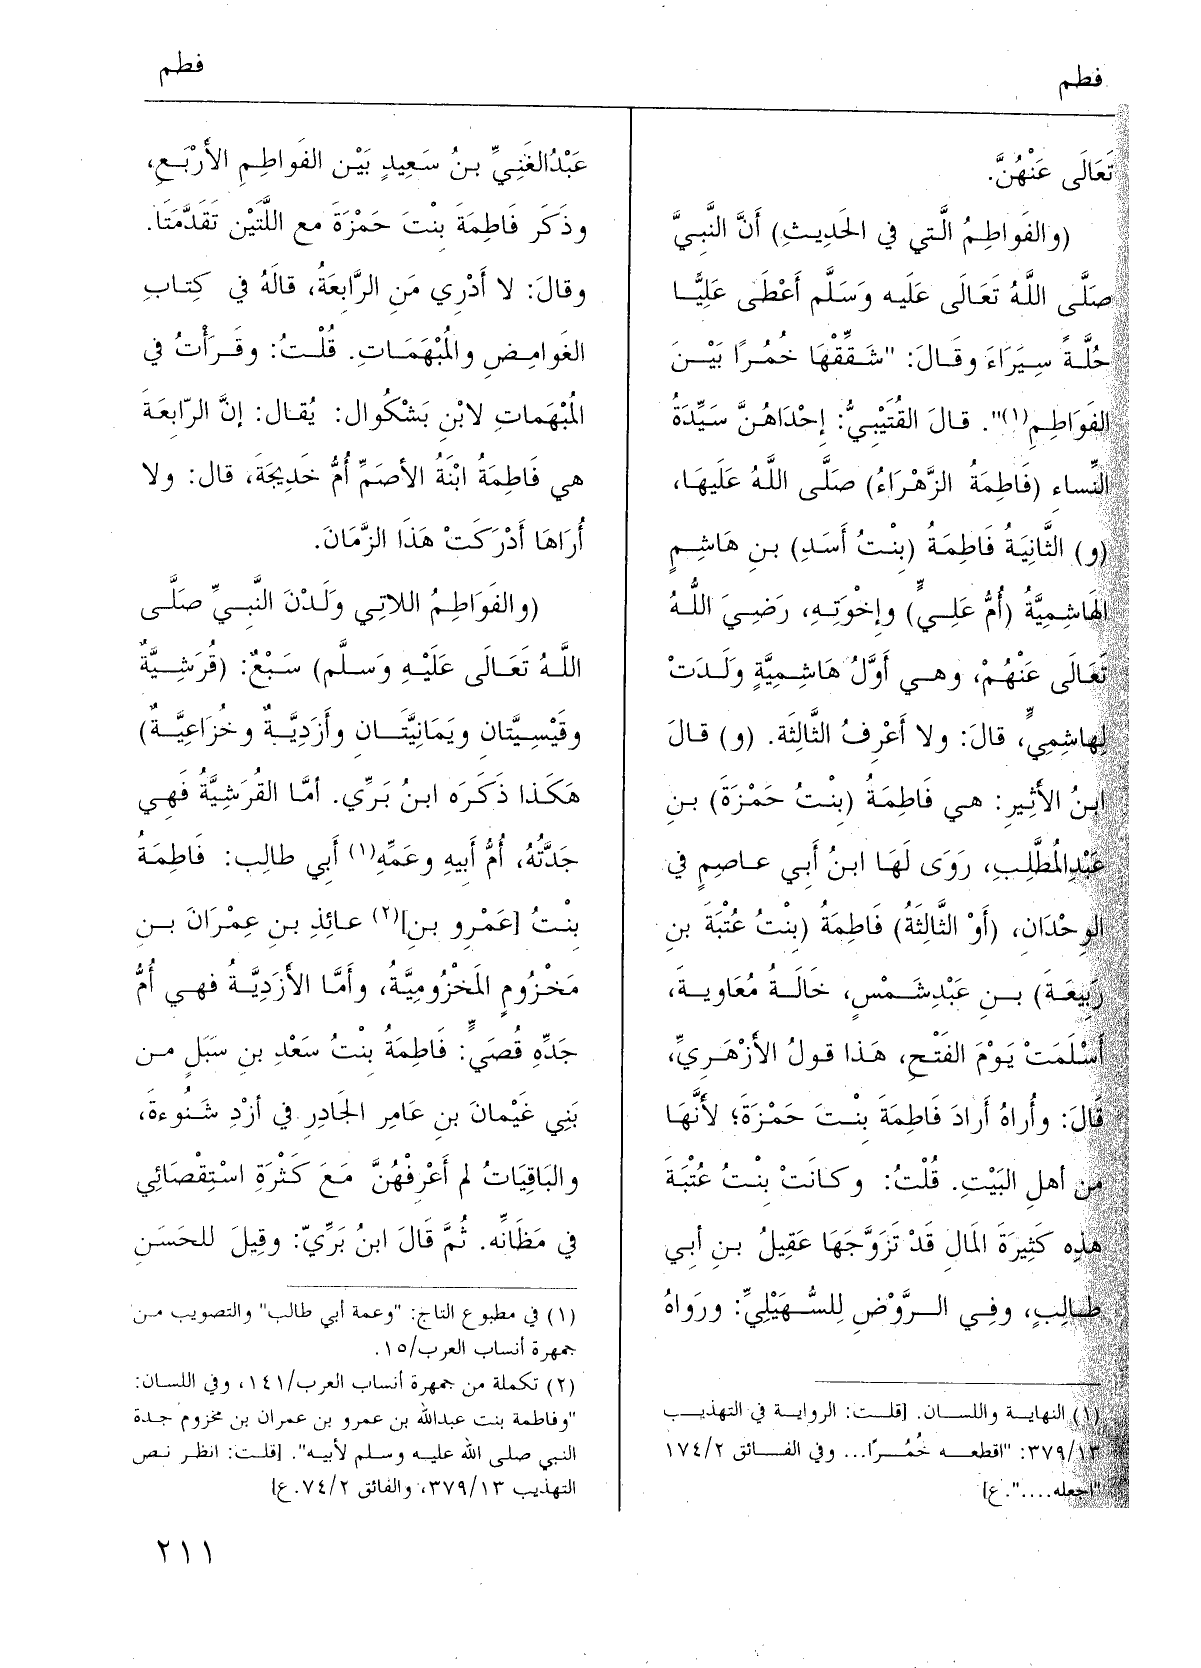 فطم
فطم
تَعَالَى عَنْهُنَّ.
(والفَواطِمُ الَّتي في الحَدِيثِ) أَنَّ النَّبِيَّ
صَلَّى اللَّهُ تَعَالَى عَلَيه وَسَلَّم أَعْطَى عَلِيًّا
حُلَّةً سِيَرَاءَ وقَالَ: "شَقِّقْهَا خُمُرًا بَيْنَ
الفَوَاطِمِ(١)". قالَ القُتَيْبِيُّ: إِحْدَاهُنَّ سَيِّدَةُ
النِّساءِ (فَاطِمَةُ الزَّهْرَاءُ) صَلَّى اللَّهُ عَلَيهَا،
(و) الثَّانِيَةُ فَاطِمَةُ (بِنْتُ أَسَدِ) بنِ هَاشِمٍ
الهَاشِمِيَّةُ (أُمُّ عَلِيٍّ) وإِخْوَتِهِ، رَضِيَ اللَّهُ
تَعَالَى عَنْهُمْ، وهي أَوَّلُ هَاشِمِيَّةٍ وَلَدَتْ
لِهاشِمِيٍّ، قالَ: ولا أَعْرِفُ الثَّالِثَة. (و) قالَ
ابنُ الأَثِيرِ: هي فَاطِمَةُ (بِنْتُ حَمْزَةَ) بنِ
عَبْدِالمُطَّلِبِ، رَوَى لَهَا ابنُ أَبي عاصِمٍ في
الوِحْدَانِ، (أَوْ الثَّالِثَةُ) فَاطِمَةُ (بِنْتُ عُتْبَةَ بنِ
رَبِيعَةَ) بنِ عَبْدِشَمْسٍ، خَالَةُ مُعَاوِيةَ،
أَسْلَمَتْ يَوْمَ الفَتْحِ، هَذَا قولُ الأَزْهَرِيِّ،
قَالَ: وأُراهُ أَرادَ فَاطِمَةَ بِنْتَ حَمْزَةَ؛ لأَنَّهَا
من أهلِ البَيْتِ. قُلْتُ: وكانَتْ بِنْتُ عُتْبَةَ
هذِه كَثِيرَةَ المَالِ قَدْ تَزَوَّجَهَا عَقِيلُ بنِ أبي
طالِبٍ، وفِي الرَّوْضِ لِلسُّهَيْلِيِّ: ورَواهُ
(١) النهاية واللسان. [قلت: الرواية في التهذيب
٣٧٩/١٣: "اقطعه خُمُرًا... وفي الفائق ١٧٤/٢
"اجعله....". ع]
عَبْدُالغَنِيِّ بنُ سَعِيدٍ بَيْن الفَواطِمِ الأَرْبَعِ،
وذَكَر فَاطِمَةَ بِنْتَ حَمْزَةَ مع اللَّتَيْن تَقَدَّمَتَا.
وقالَ: لا أَدْرِي مَنِ الرَّابِعَةُ، قالَهُ في كِتابِ
الغَوامِضِ والمُبْهَمَاتِ. قُلْتُ: وقَرَأْتُ في
المُبْهَماتِ لابْنِ بَشْكُوال: يُقال: إنَّ الرّابِعَةَ
هي فَاطِمَةُ ابْنَةُ الأصَمِّ أُمُّ خَدِيجَةَ، قال: ولا
أُرَاهَا أَدْرَكَتْ هَذَا الزَّمَانَ.
(والفَوَاطِمُ اللاتِي وَلَدْنَ النَّبِيَّ صَلَّى
اللَّهُ تَعَالَى عَلَيْهِ وَسلَّم) سَبْعٌ: (قُرَشِيَّةٌ
وقَيْسِيَّتانِ ويَمَانِيَّتَانِ وأَزْدِيَّةٌ وخُزَاعِيَّةٌ)
هَكَذا ذَكَرَه ابنُ بَرِّي. أمَّا القُرَشِيَّةُ فَهِي
جَدَّتُهُ، أُمُّ أَبِيهِ وعَمِّهِ(١) أَبي طالِب: فَاطِمَةُ
بِنْتُ [عَمْرِو بنِ](٢) عائِذِ بنِ عِمْرَانَ بنِ
مَخْزُومٍ المَخْزُومِيَّةُ، وأَمَّا الأَزدِيَّةُ فهي أُمُّ
جَدِّهِ قُصَيٍّ: فَاطِمَةُ بِنْتُ سَعْدِ بنِ سَبَلٍ من
بَنِي غَيْمانَ بنِ عَامِرِ الجَادِرِ في أزْدِ شَنُوءةَ،
والبَاقِيَاتُ لم أَعْرِفْهُنَّ مَعَ كَثْرَةِ اسْتِقْصَائِي
في مَظَانِّه. ثُمَّ قَالَ ابنُ بَرِّيّ: وقِيلَ للحَسَنِ
(١) في مطبوع التاج: "وعمة أبي طالب" والتصويب من
جمهرة أنساب العرب/١٥.
(٢) تكملة من جمهرة أنساب العرب/١٤١، وفي اللسان:
"وفاطمة بنت عبدالله بن عمرو بن عمران بن مخزوم جدة
النبي صلى الله عليه وسلم لأبيه". [قلت: انظر نص
التهذيب ٣٧٩/١٣، والفائق ٧٤/٢. ع]
٢١١